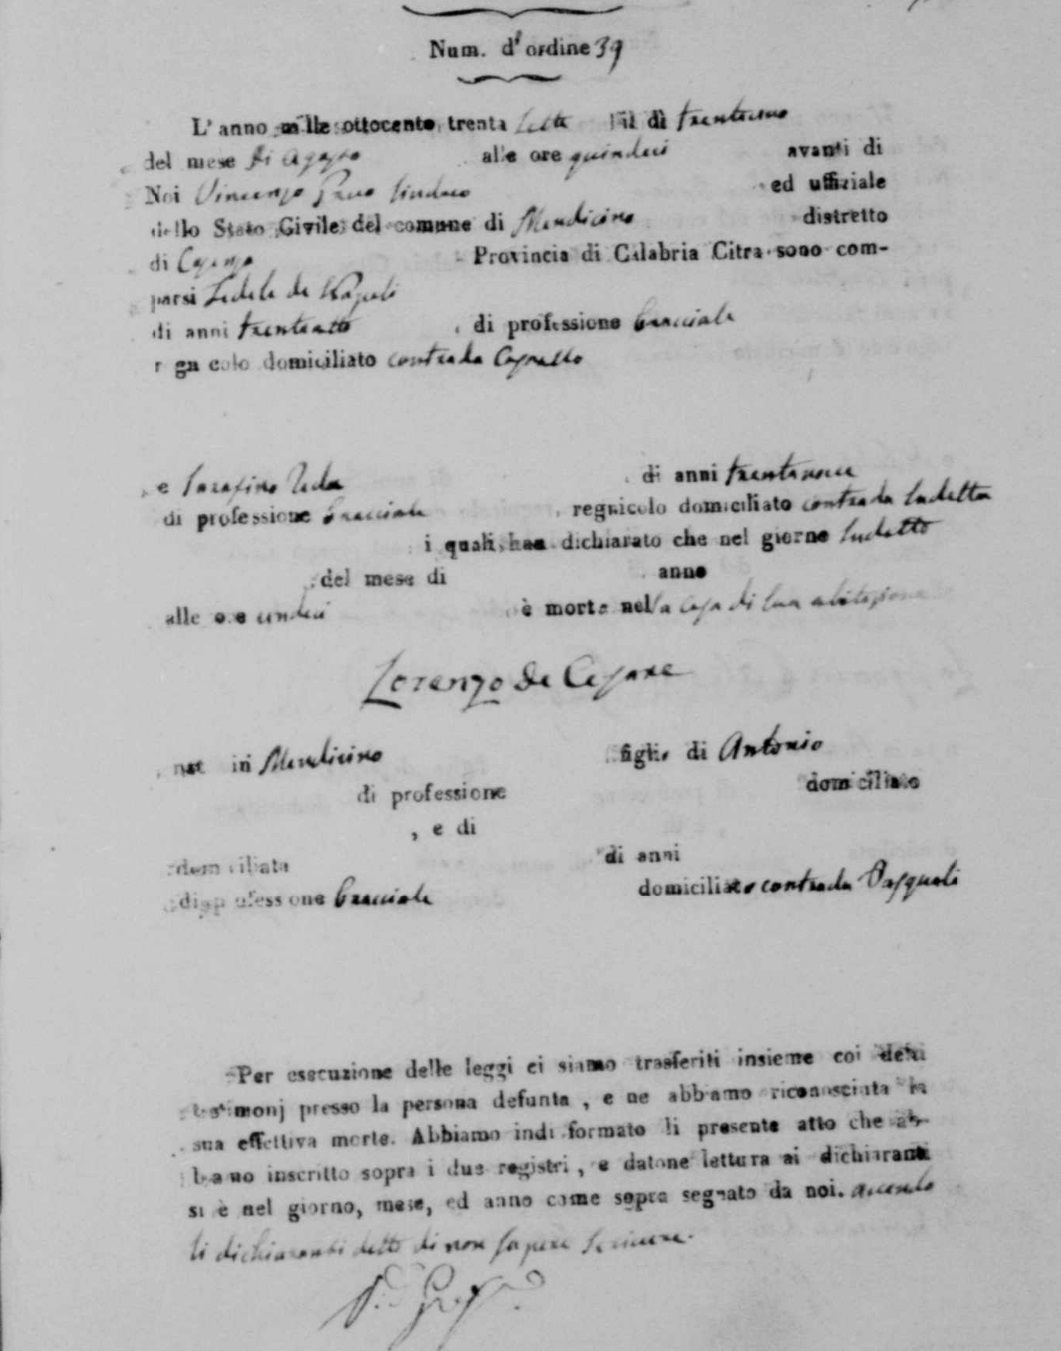 Num. d'ordine 39
L'anno mille ottocento trenta sette il dì trentuno
del mese di Agosto alle ore quindici avanti di
Noi Vincenzo Greco Sindaco ed uffiziale
dello Stato Civile del comune di Mendicino distretto
di Cosenza Provincia di Calabria Citra sono com-
parsi Fedele de Napoli
di anni trentotto di professione bracciale
regnicolo domiciliato contrada Cappello
e Serafino Reda di anni trentanove
di professione bracciale regnicolo domiciliato contrada sudetta
i quali han dichiarato che nel giorno sudetto
del mese di anno
alle ore undici è morto nella casa di sua abitazione
Lorenzo de Cesare
nat in Mendicino figlio di Antonio
di professione domiciliato
, e di
domiciliata di anni
di professione bracciale domiciliato contrada Pasquali
Per esecuzione delle leggi ci siamo trasferiti insieme coi detti
testimonj presso la persona defunta, e ne abbiamo riconosciuta la
sua effettiva morte. Abbiamo indi formato li presente atto che ab-
biamo inscritto sopra i due registri, e datone lettura ai dichiaranti
si è nel giorno, mese, ed anno come sopra segnato da noi. avendo
li dichiaranti detto di non sapere scrivere.